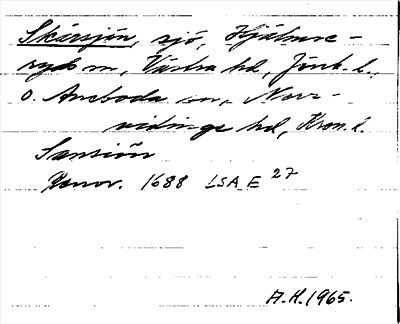 Skärsjön, sjö, Hjälmse-
ryds sn, Västra hd, Jönk. l.
o. Aneboda sn, Norr-
vidinge hd, Kron. l.
Renov. 1688 LSA E 27
A.H. 1965.